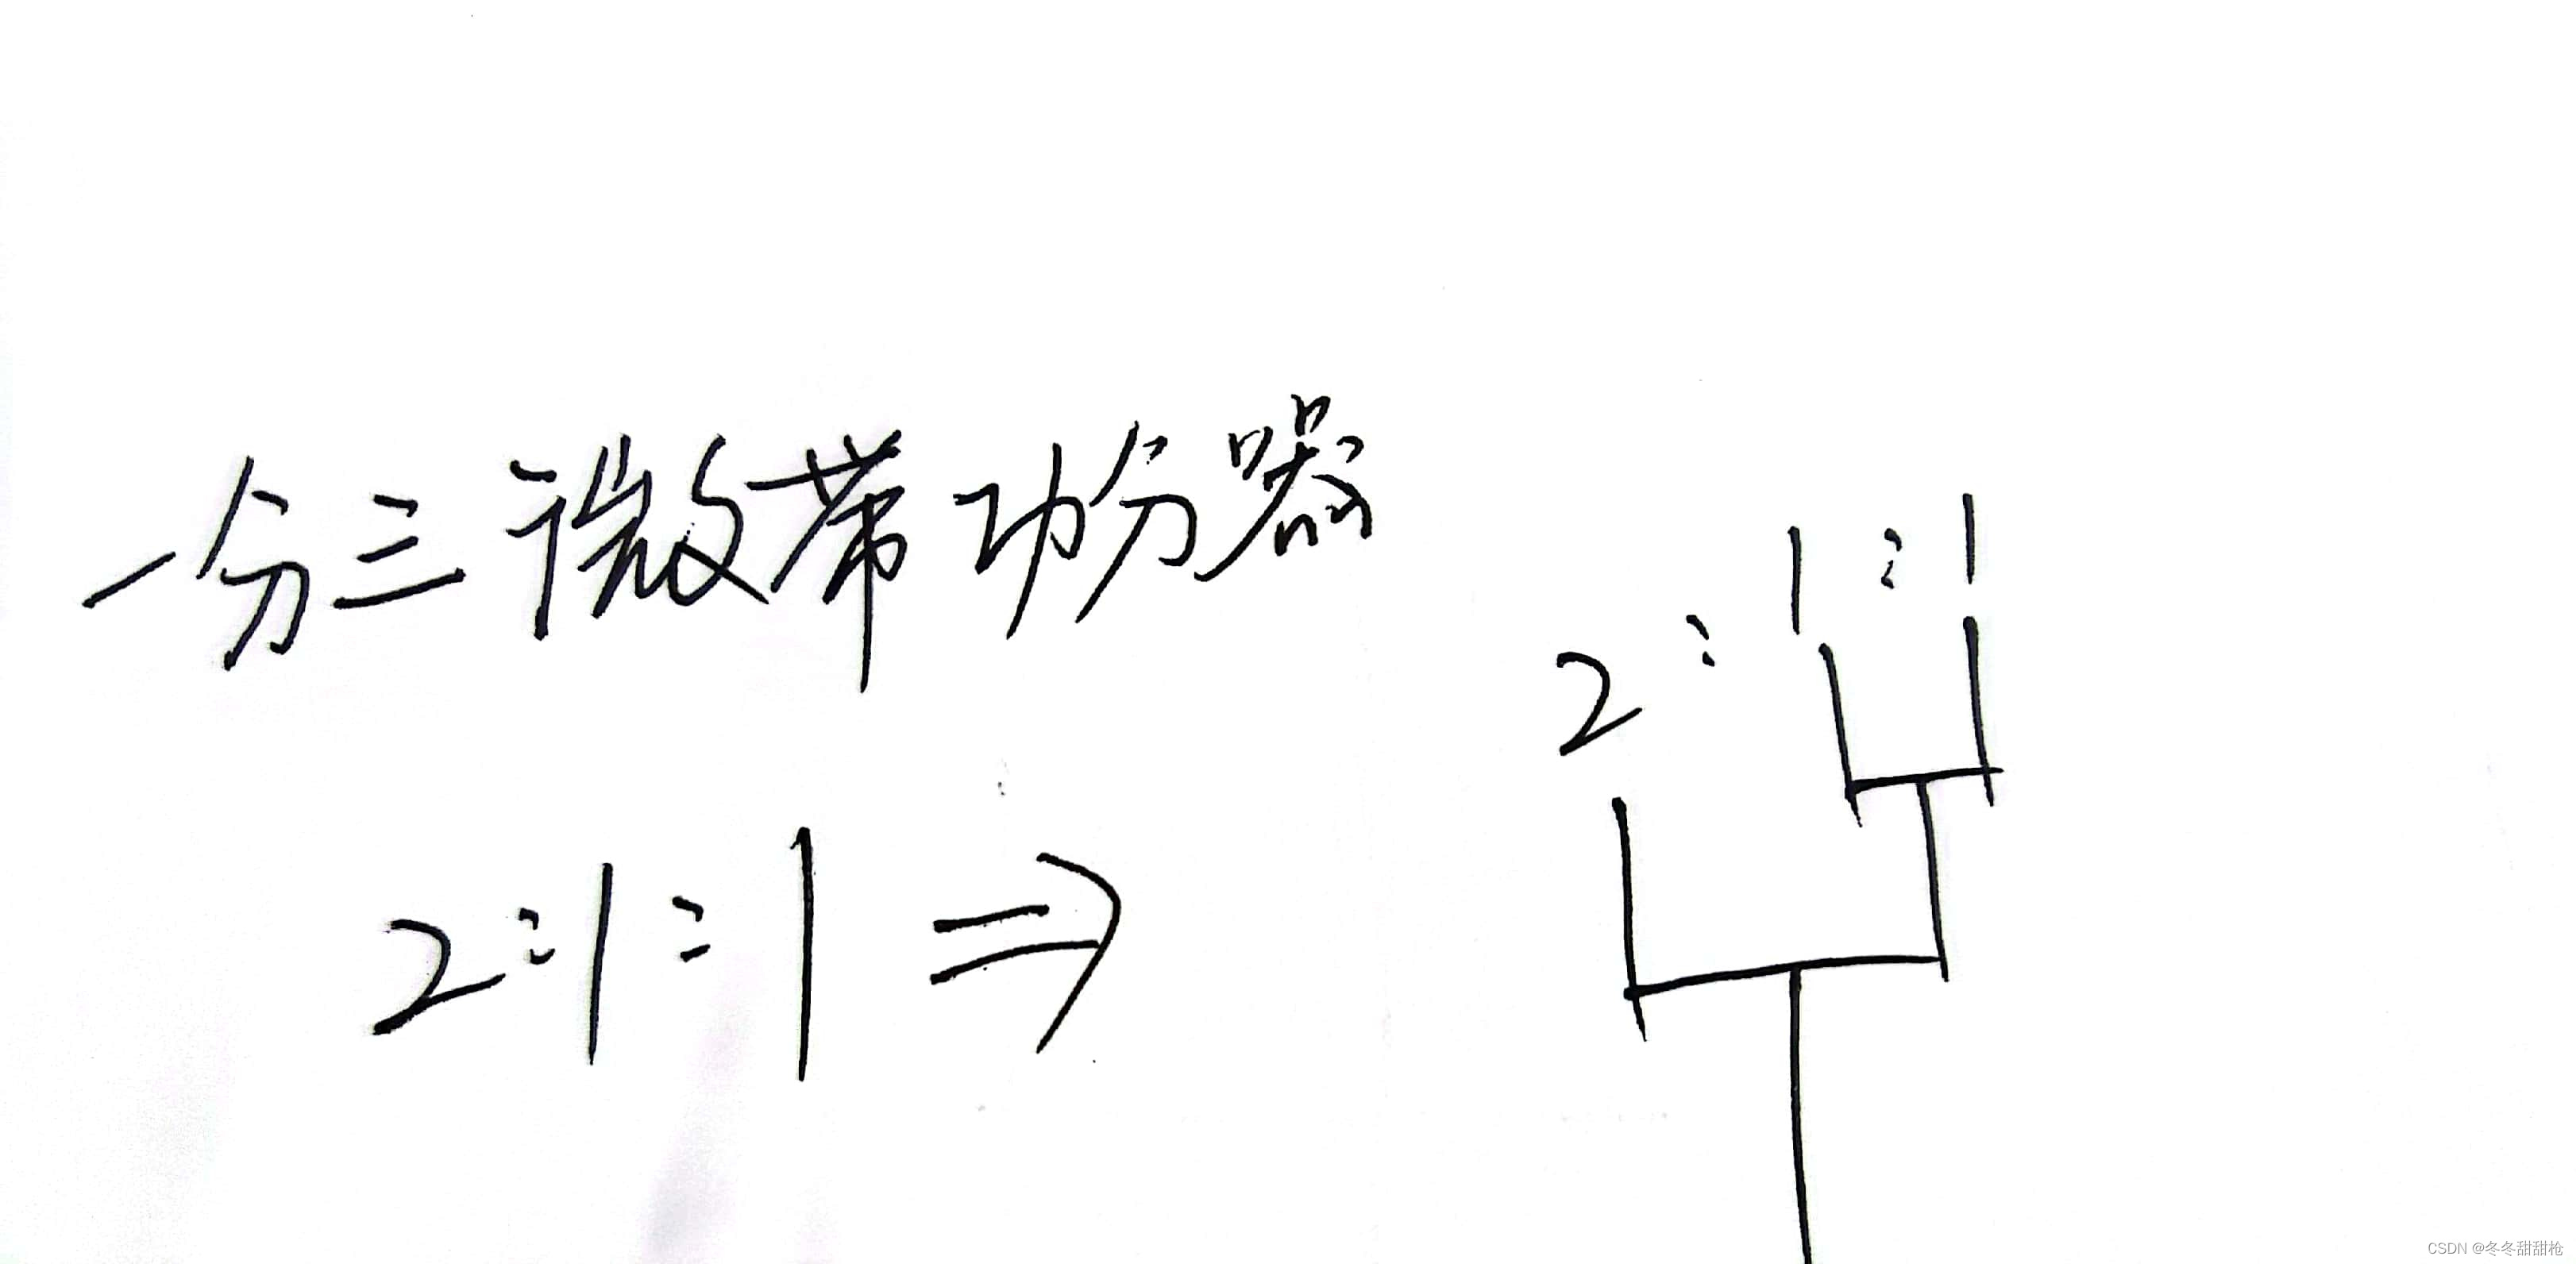 一分三微带功分器
2:1:1 ⇒
2:1:1
CSDN @冬冬甜甜枪